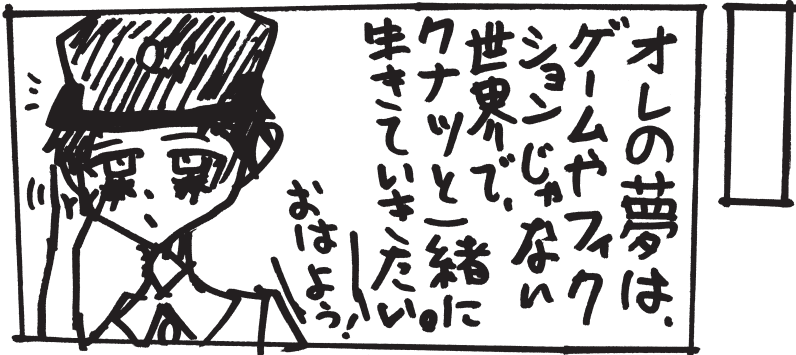 オレの夢は、
ゲームやフィク
ションじゃない
世界で、
クナツと一緒に
生きていきたい。
おはよう!